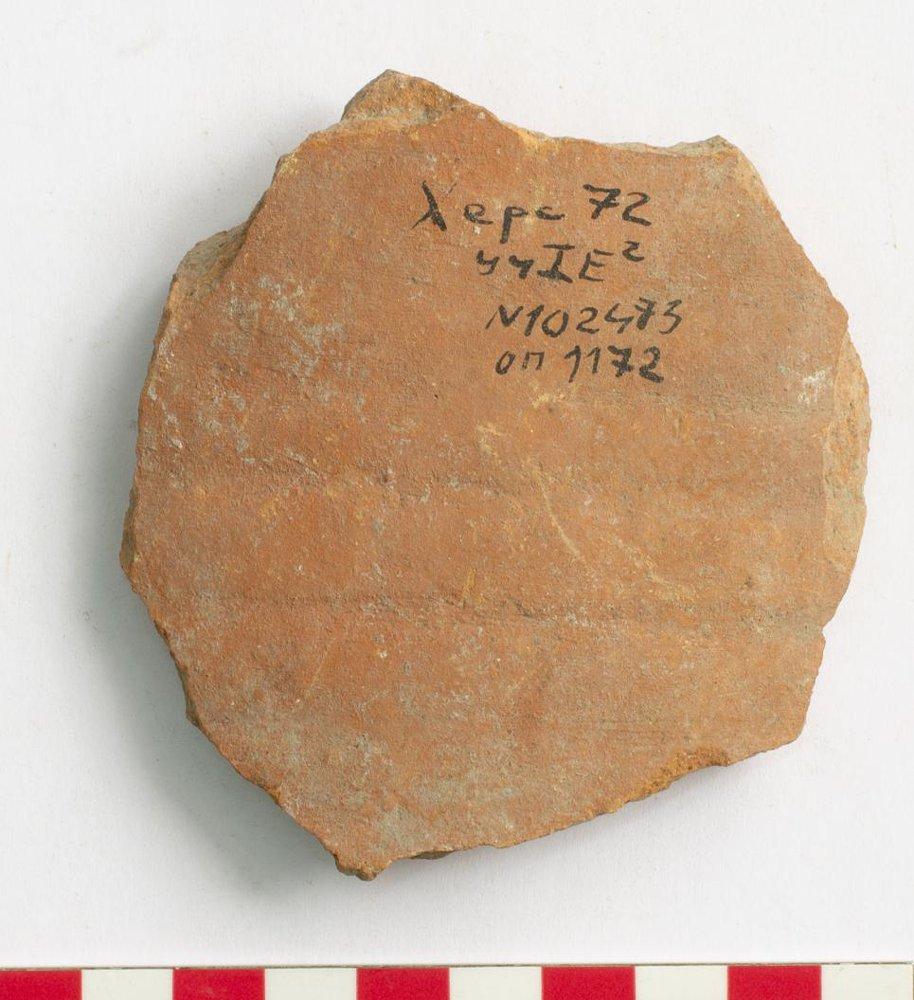 Херс 72
уч IE²
N102473
оп 1172